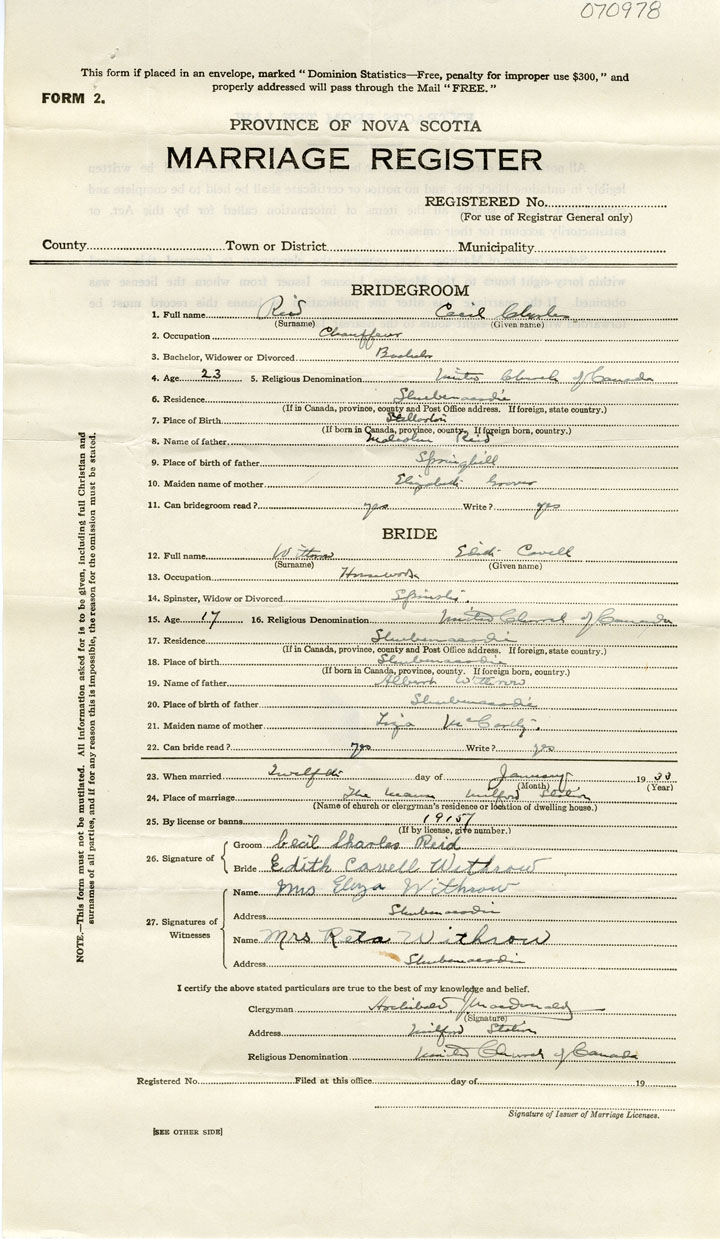 070978
This form if placed in an envelope, marked "Dominion Statistics—Free, penalty for improper use $300," and
properly addressed will pass through the Mail "FREE."
FORM 2.
PROVINCE OF NOVA SCOTIA
MARRIAGE REGISTER
REGISTERED No.
(For use of Registrar General only)
County Town or District Municipality
BRIDEGROOM
1. Full name Reid Cecil Charles
(Surname) (Given name)
2. Occupation Chauffeur
3. Bachelor, Widower or Divorced Bachelor
4. Age 23 5. Religious Denomination United Church of Canada
6. Residence Shubenacadie
(If in Canada, province, county and Post Office address. If foreign, state country.)
7. Place of Birth Stellarton
(If born in Canada, province, county. If foreign born, country.)
8. Name of father Malcolm Reid
9. Place of birth of father Springhill
10. Maiden name of mother Elizabeth
11. Can bridegroom read? yes Write? yes
BRIDE
12. Full name Withrow Edith Cavell
(Surname) (Given name)
13. Occupation Housework
14. Spinster, Widow or Divorced Spinster
15. Age 17 16. Religious Denomination United Church of Canada
17. Residence Shubenacadie
(If in Canada, province, county and Post Office address. If foreign, state country.)
18. Place of birth Shubenacadie
(If born in Canada, province, county. If foreign born, country.)
19. Name of father Albert Withrow
20. Place of birth of father Shubenacadie
21. Maiden name of mother Liza McCarthy
22. Can bride read? yes Write? yes
23. When married Twelfth day of January 1933
(Month) (Year)
24. Place of marriage The Manse Milford Station
(Name of church or clergyman's residence or location of dwelling house.)
25. By license or banns 19157
(If by license, give number.)
26. Signature of Groom Cecil Charles Reid
Bride Edith Cavell Withrow
27. Signatures of Witnesses
Name Mrs Eliza Withrow
Address Shubenacadie
Name Mrs Reta Withrow
Address Shubenacadie
I certify the above stated particulars are true to the best of my knowledge and belief.
Clergyman Archibald J Macdonald
(Signature)
Address Milford Station
Religious Denomination United Church of Canada
Registered No. Filed at this office day of 19
Signature of Issuer of Marriage Licenses.
[SEE OTHER SIDE]
NOTE.—This form must not be mutilated. All information asked for is to be given, including full Christian and
surnames of all parties, and if for any reason this is impossible, the reason for the omission must be stated.